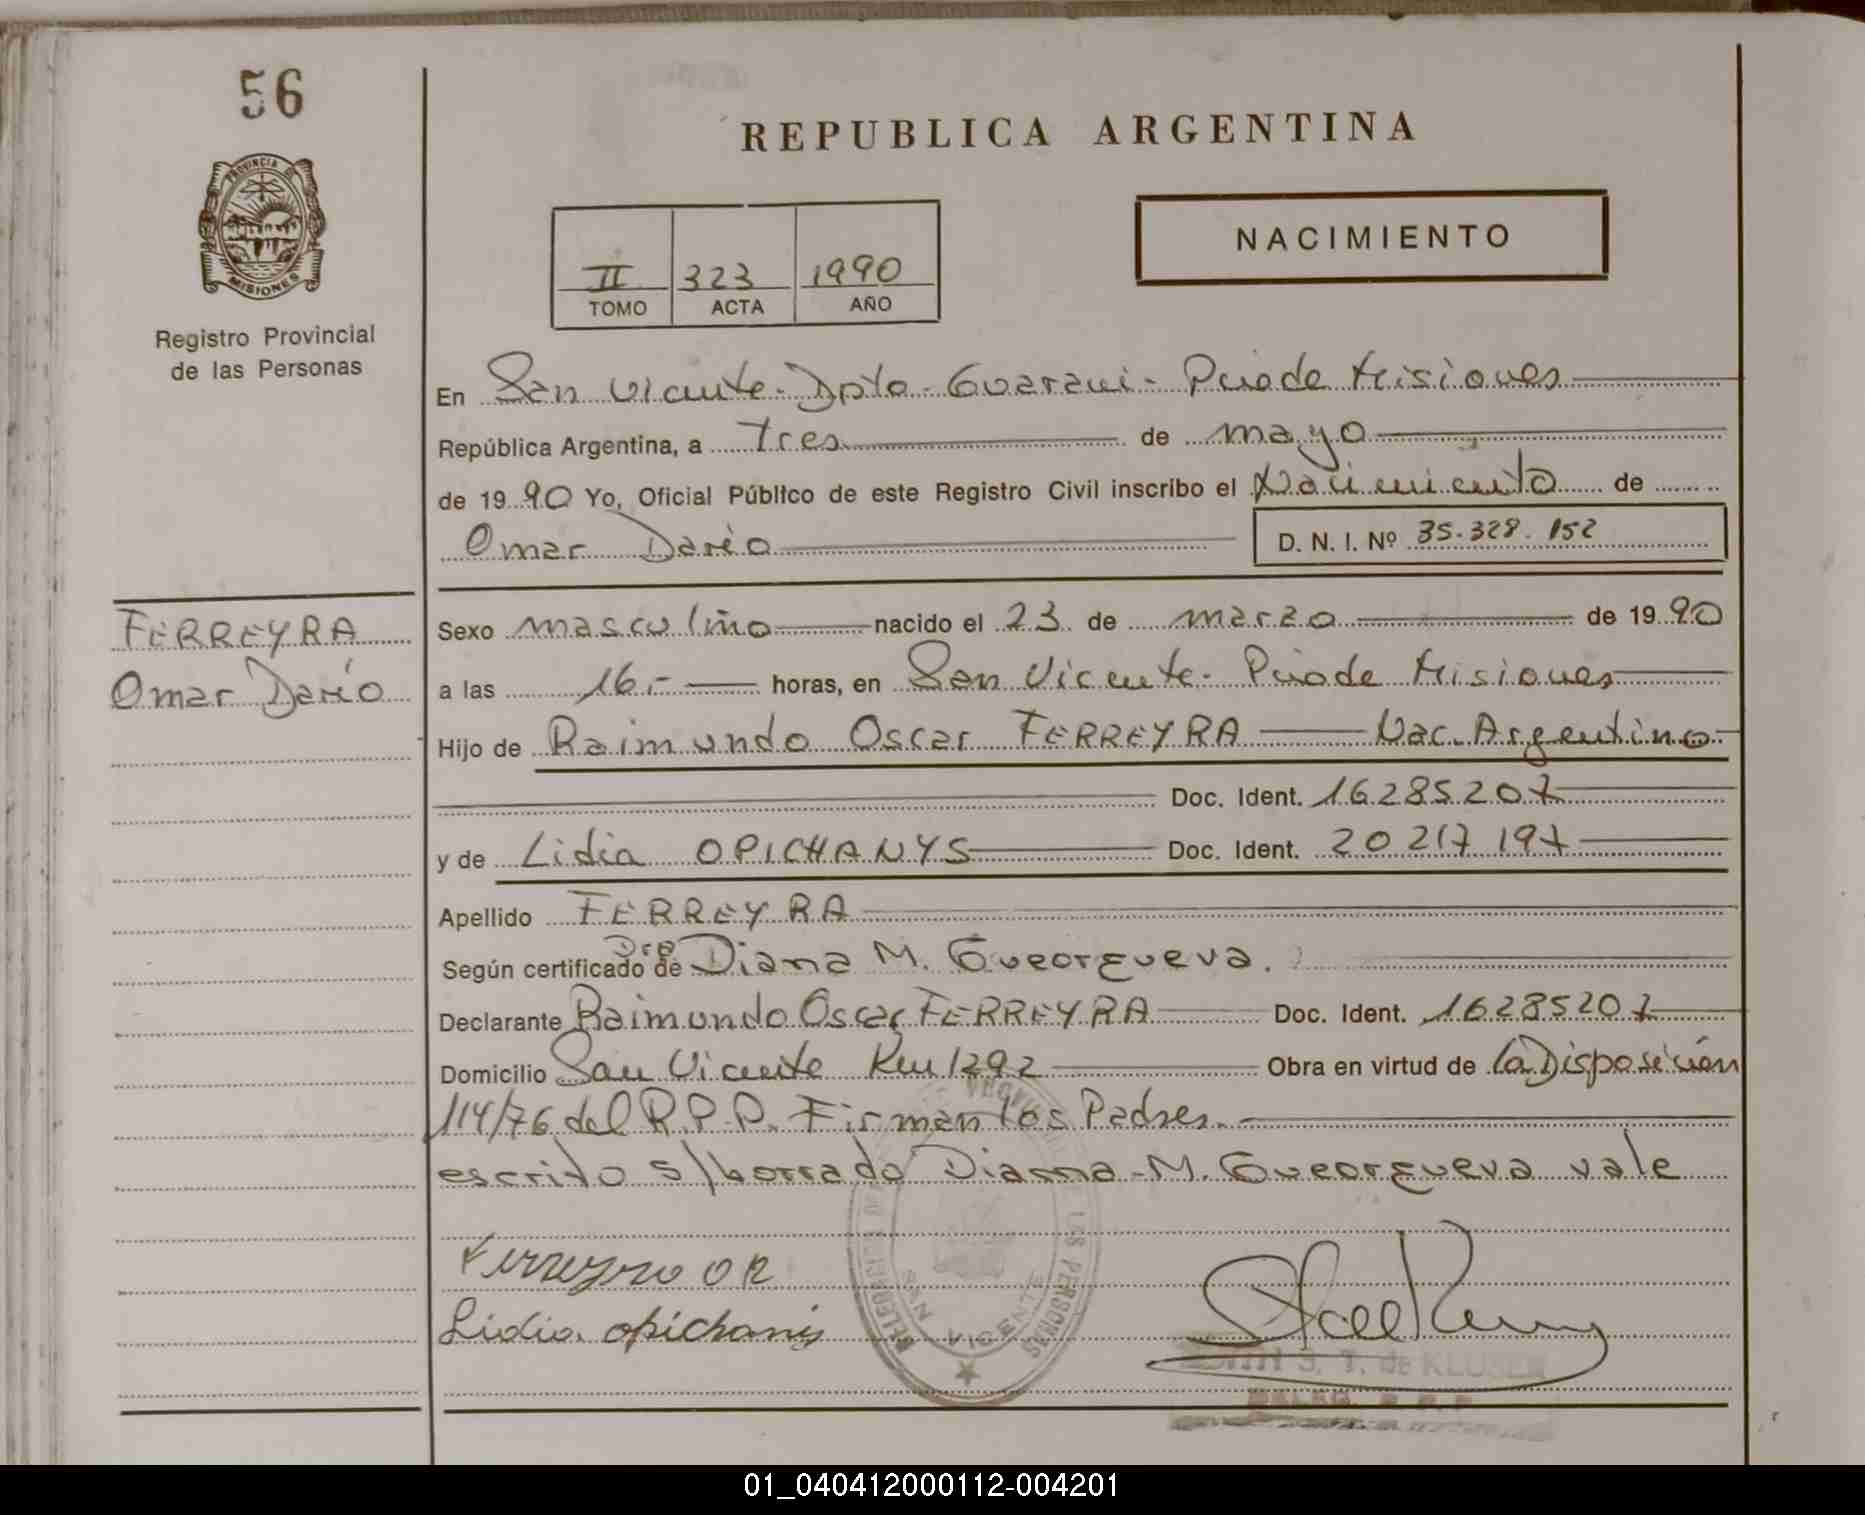 56
PROVINCIA DE
MISIONES
Registro Provincial
de las Personas
REPUBLICA ARGENTINA
II 323 1990
TOMO ACTA AÑO
NACIMIENTO
En San Vicente - Dpto - Guarani - Pcia de Misiones
República Argentina, a Tres de mayo
de 1990 Yo, Oficial Público de este Registro Civil inscribo el Nacimiento de
Omar Darío D. N. I. Nº 35.328.152
FERREYRA
Omar Darío
Sexo masculino nacido el 23 de marzo de 1990
a las 16.- horas, en San Vicente - Pcia de Misiones
Hijo de Raimundo Oscar FERREYRA Nac. Argentino
Doc. Ident. 16285207
y de Lidia OPICHANYS Doc. Ident. 20217197
Apellido FERREYRA
Según certificado de Dra Diana M. Gueorgueva.
Declarante Raimundo Oscar FERREYRA Doc. Ident. 16285207
Domicilio San Vicente Km 1292 Obra en virtud de la Disposición
114/76 del R.P.P. Firman los Padres.
escrito s/borrado Diana M. Gueorgueva vale
Ferreyra O R
Lidia opichanys
LAS PERSONAS
SAN VICENTE
S. T. de KLUSEN
DELEG. R. P. P.
01_040412000112-004201